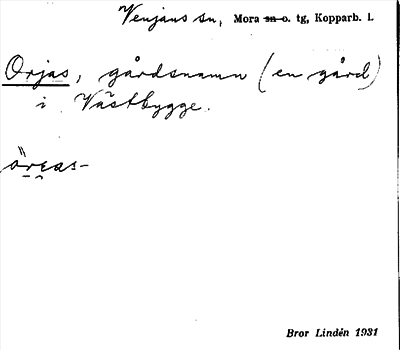 Venjans sn, Mora sn o. tg, Kopparb. l.
Orjas, gårdsnamn (en gård)
i Västbygge.
Bror Lindén 1931